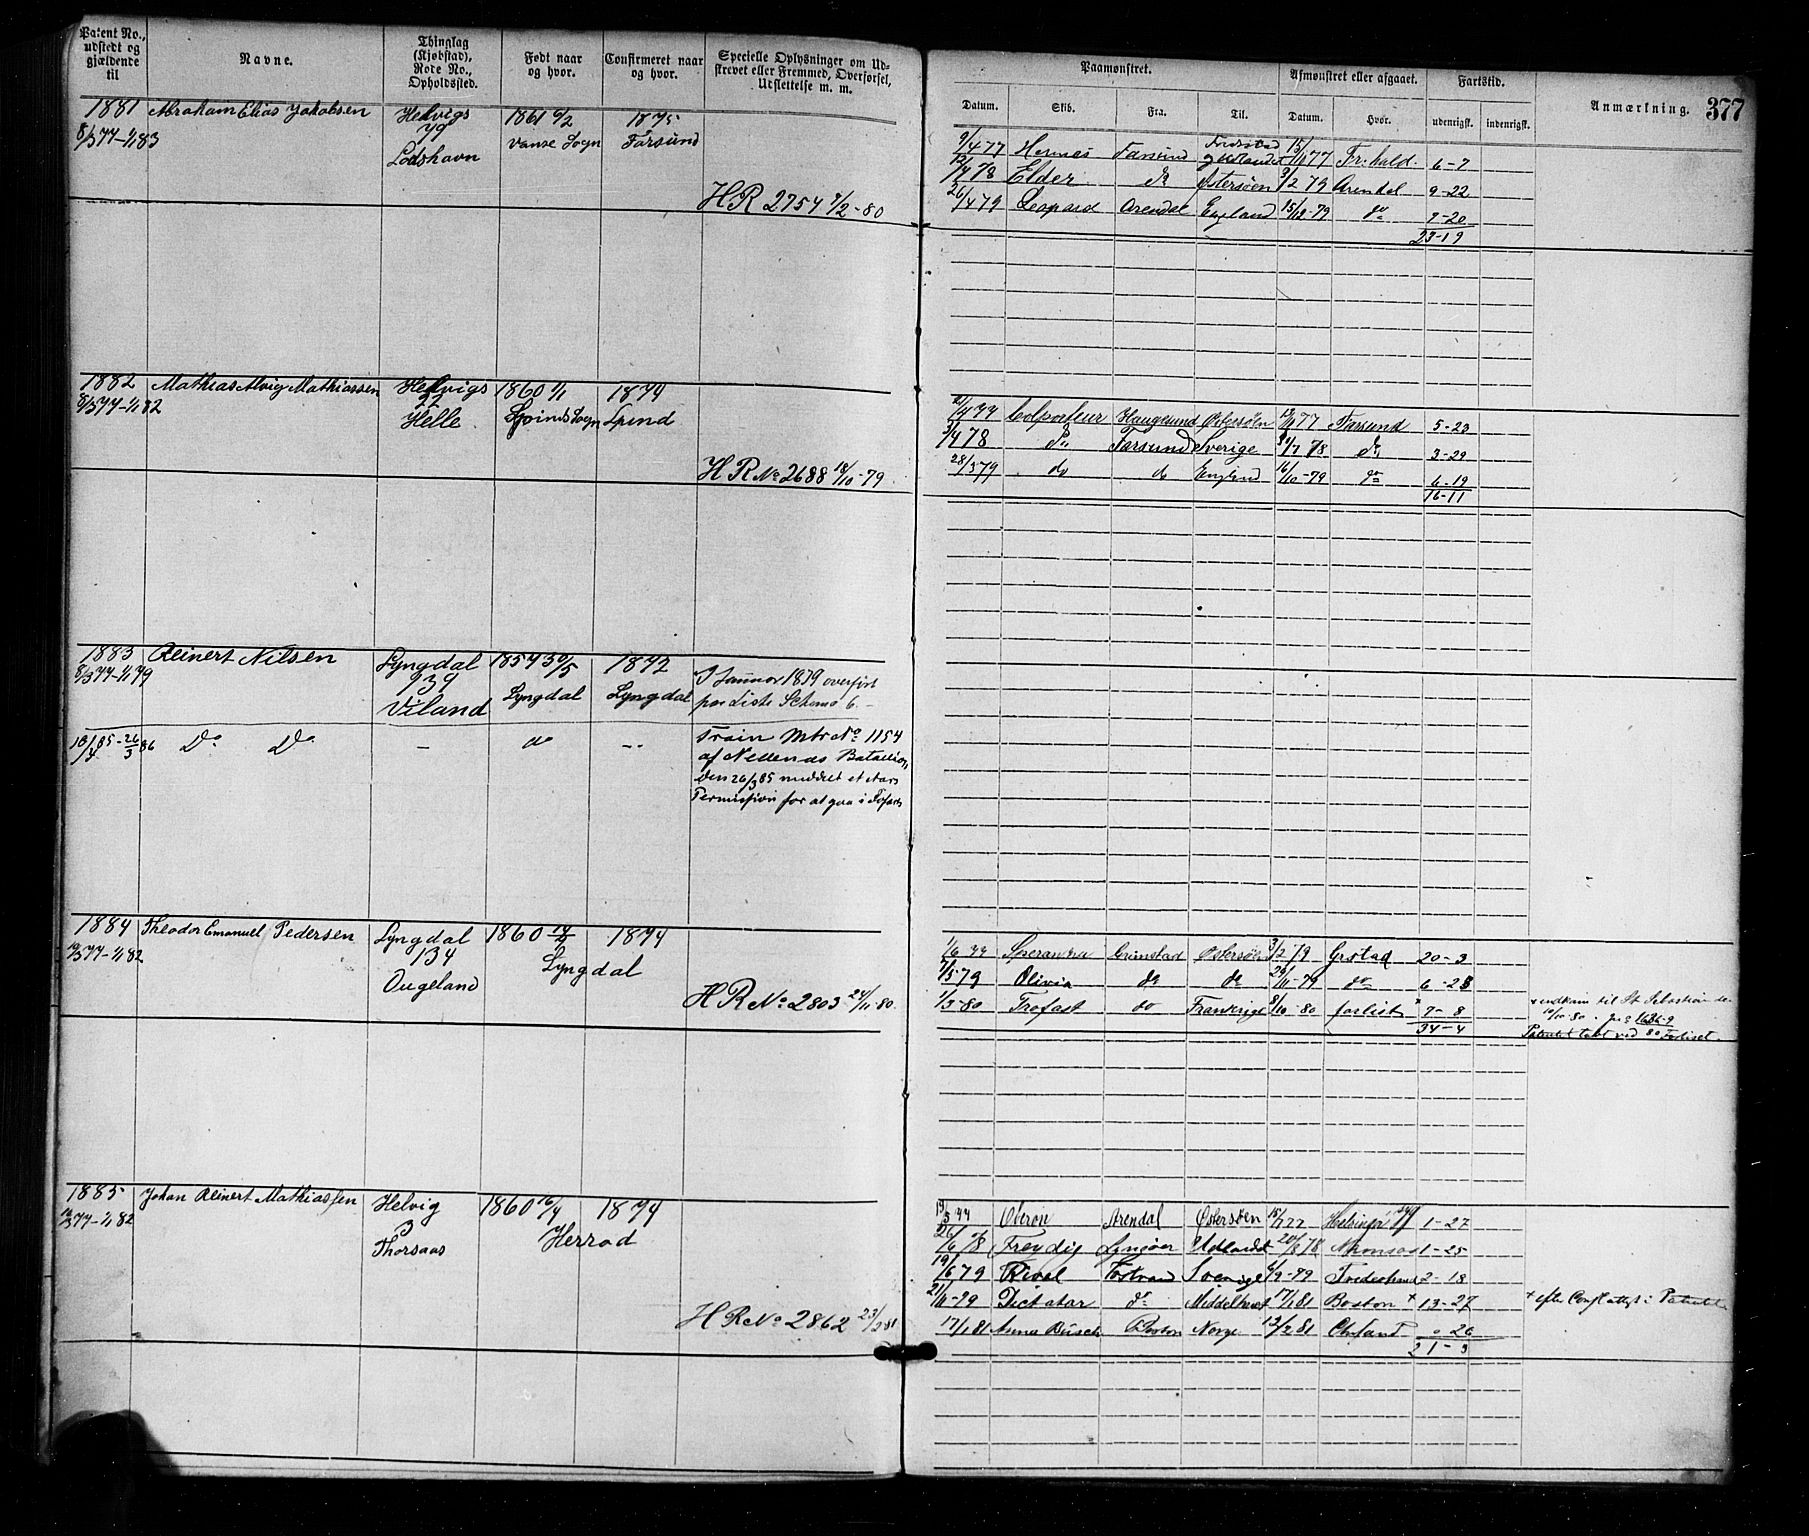 Patent No., udstedt og gjældende til
Navne.
Thinglag (Kjøbstad), Rode No., Opholdssted.
Født naar og hvor.
Confirmeret naar og hvor.
Specielle Oplysninger om Udskrevet eller Fremmed, Overførsel, Udslettelse m. m.
Paamønstret.
Afmønstret eller afgaaet.
Fartstid.
Anmærkning.
377
Datum.
Skib.
Fra.
Til.
Datum.
Hvor.
udenrigsk.
indenrigsk.
1881 Abraham Elias Jakobsen Helvigs 1861 6/2 1875
8/3 77-1/1 83 79 Vanse Sogn Farsund
Lodshavn
HR 2754 9/2-80
9/4 77 Hermes Farsund Fredrstad 15/11 77 Fr:hald. 6-7
12/4 78 Elder do Østersøen 3/2 79 Arendal 9-22
26/4 79 Leopard Arendal England 15/12-79 do 7-20
23-19
1882 Mathias Alvig Mathiassen Helvigs 1860 1/1 1874
8/3 77-1/1 82 Helle Spind Sogn Spind
HR No 2688 18/10-79
Colporteur Haugesund Østersøen 77 Farsund 5-23
3/4 78 do Farsund Sverige 78 do 3-29
28/3 79 do do England 16/10-79 do 6-19
16-11
1883 Reinert Nilsen Lyngdal 1854 30/5 1872
8/3 77-1/1 79 939 Lyngdal Lyngdal
Viland
I Januar 1879 overført
paa Liste Schema 6.
18/4 85-26/3 86 Do Do - do --
Train Mtr No 1154
af Nedenæs Bataillon,
den 26/3 85 meddelt et aars
Permission for at gaa i
1884 Theodor Emanuel Pedersen Lyngdal 1860 1874
77-1/1 82 134 Lyngdal
Augeland
HR No 2803 24/11-80.
1/6 77 Speranza Grimstad Østersøen 3/2 79 Grstad 20-3
7/5-79 Olivia do do 11-79 do 6-28
1/3-80 Trofast do Frankrige 8/10-80 forlist x 7-8
34-4
x indkom til St Sebastian
10/10-80
Patentet tabt ved Forliset.
1885 Johan Reinert Mathiassen Helvig 1860 16/4 1874
77-1/1 82 3 Herrad
Thorsaas
HR No 2862 23/2 81
Oberon Arendal Østersøen 77 1-27
26/6 78 Freydig Lyngør Udlandet 78 1-25
19/6 79 Rival Tvedestrand Sverige 6/9-79 2-18
21/11-79 Dictator do Middelhavet 17/1 81 Boston + 13-27
+ efter Consl attest i Patentet
17/1 81 Anna Busch Boston Norge 13/2 81 26
21-3